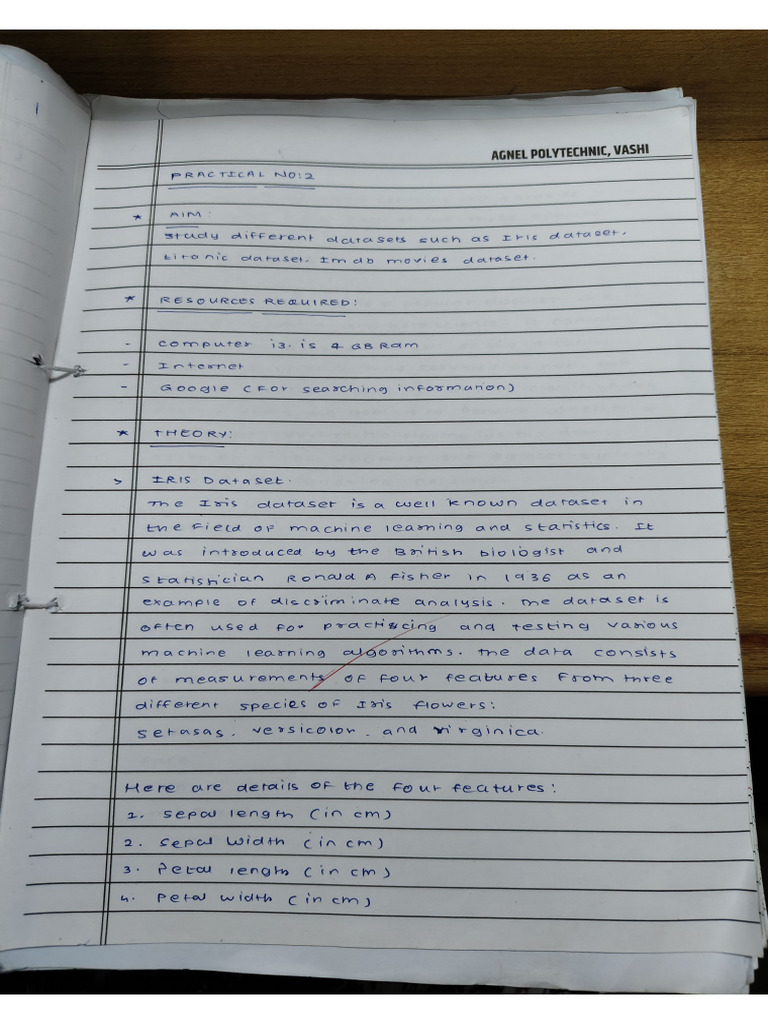 1
AGNEL POLYTECHNIC, VASHI
PRACTICAL NO:2
* AIM:
Study different datasets such as Iris dataset,
titanic dataset, Imdb movies dataset.
* RESOURCES REQUIRED:
- computer i3. is 4 GB Ram
- Internet
- Google (For searching information)
* THEORY:
> IRIS Dataset.
The Iris dataset is a well known dataset in
the field of machine learning and statistics. It
was introduced by the British biologist and
statistician Ronald A Fisher in 1936 as an
example of discriminate analysis. The dataset is
often used for practiscing and testing various
machine learning algorithms. The data consists
of measurements of four features from three
different species of Iris flowers:
setasas, versicolor, and virginica.
Here are details of the four features:
1. sepal length (in cm)
2. sepal width (in cm)
3. Petal length (in cm)
4. Petal width (in cm)